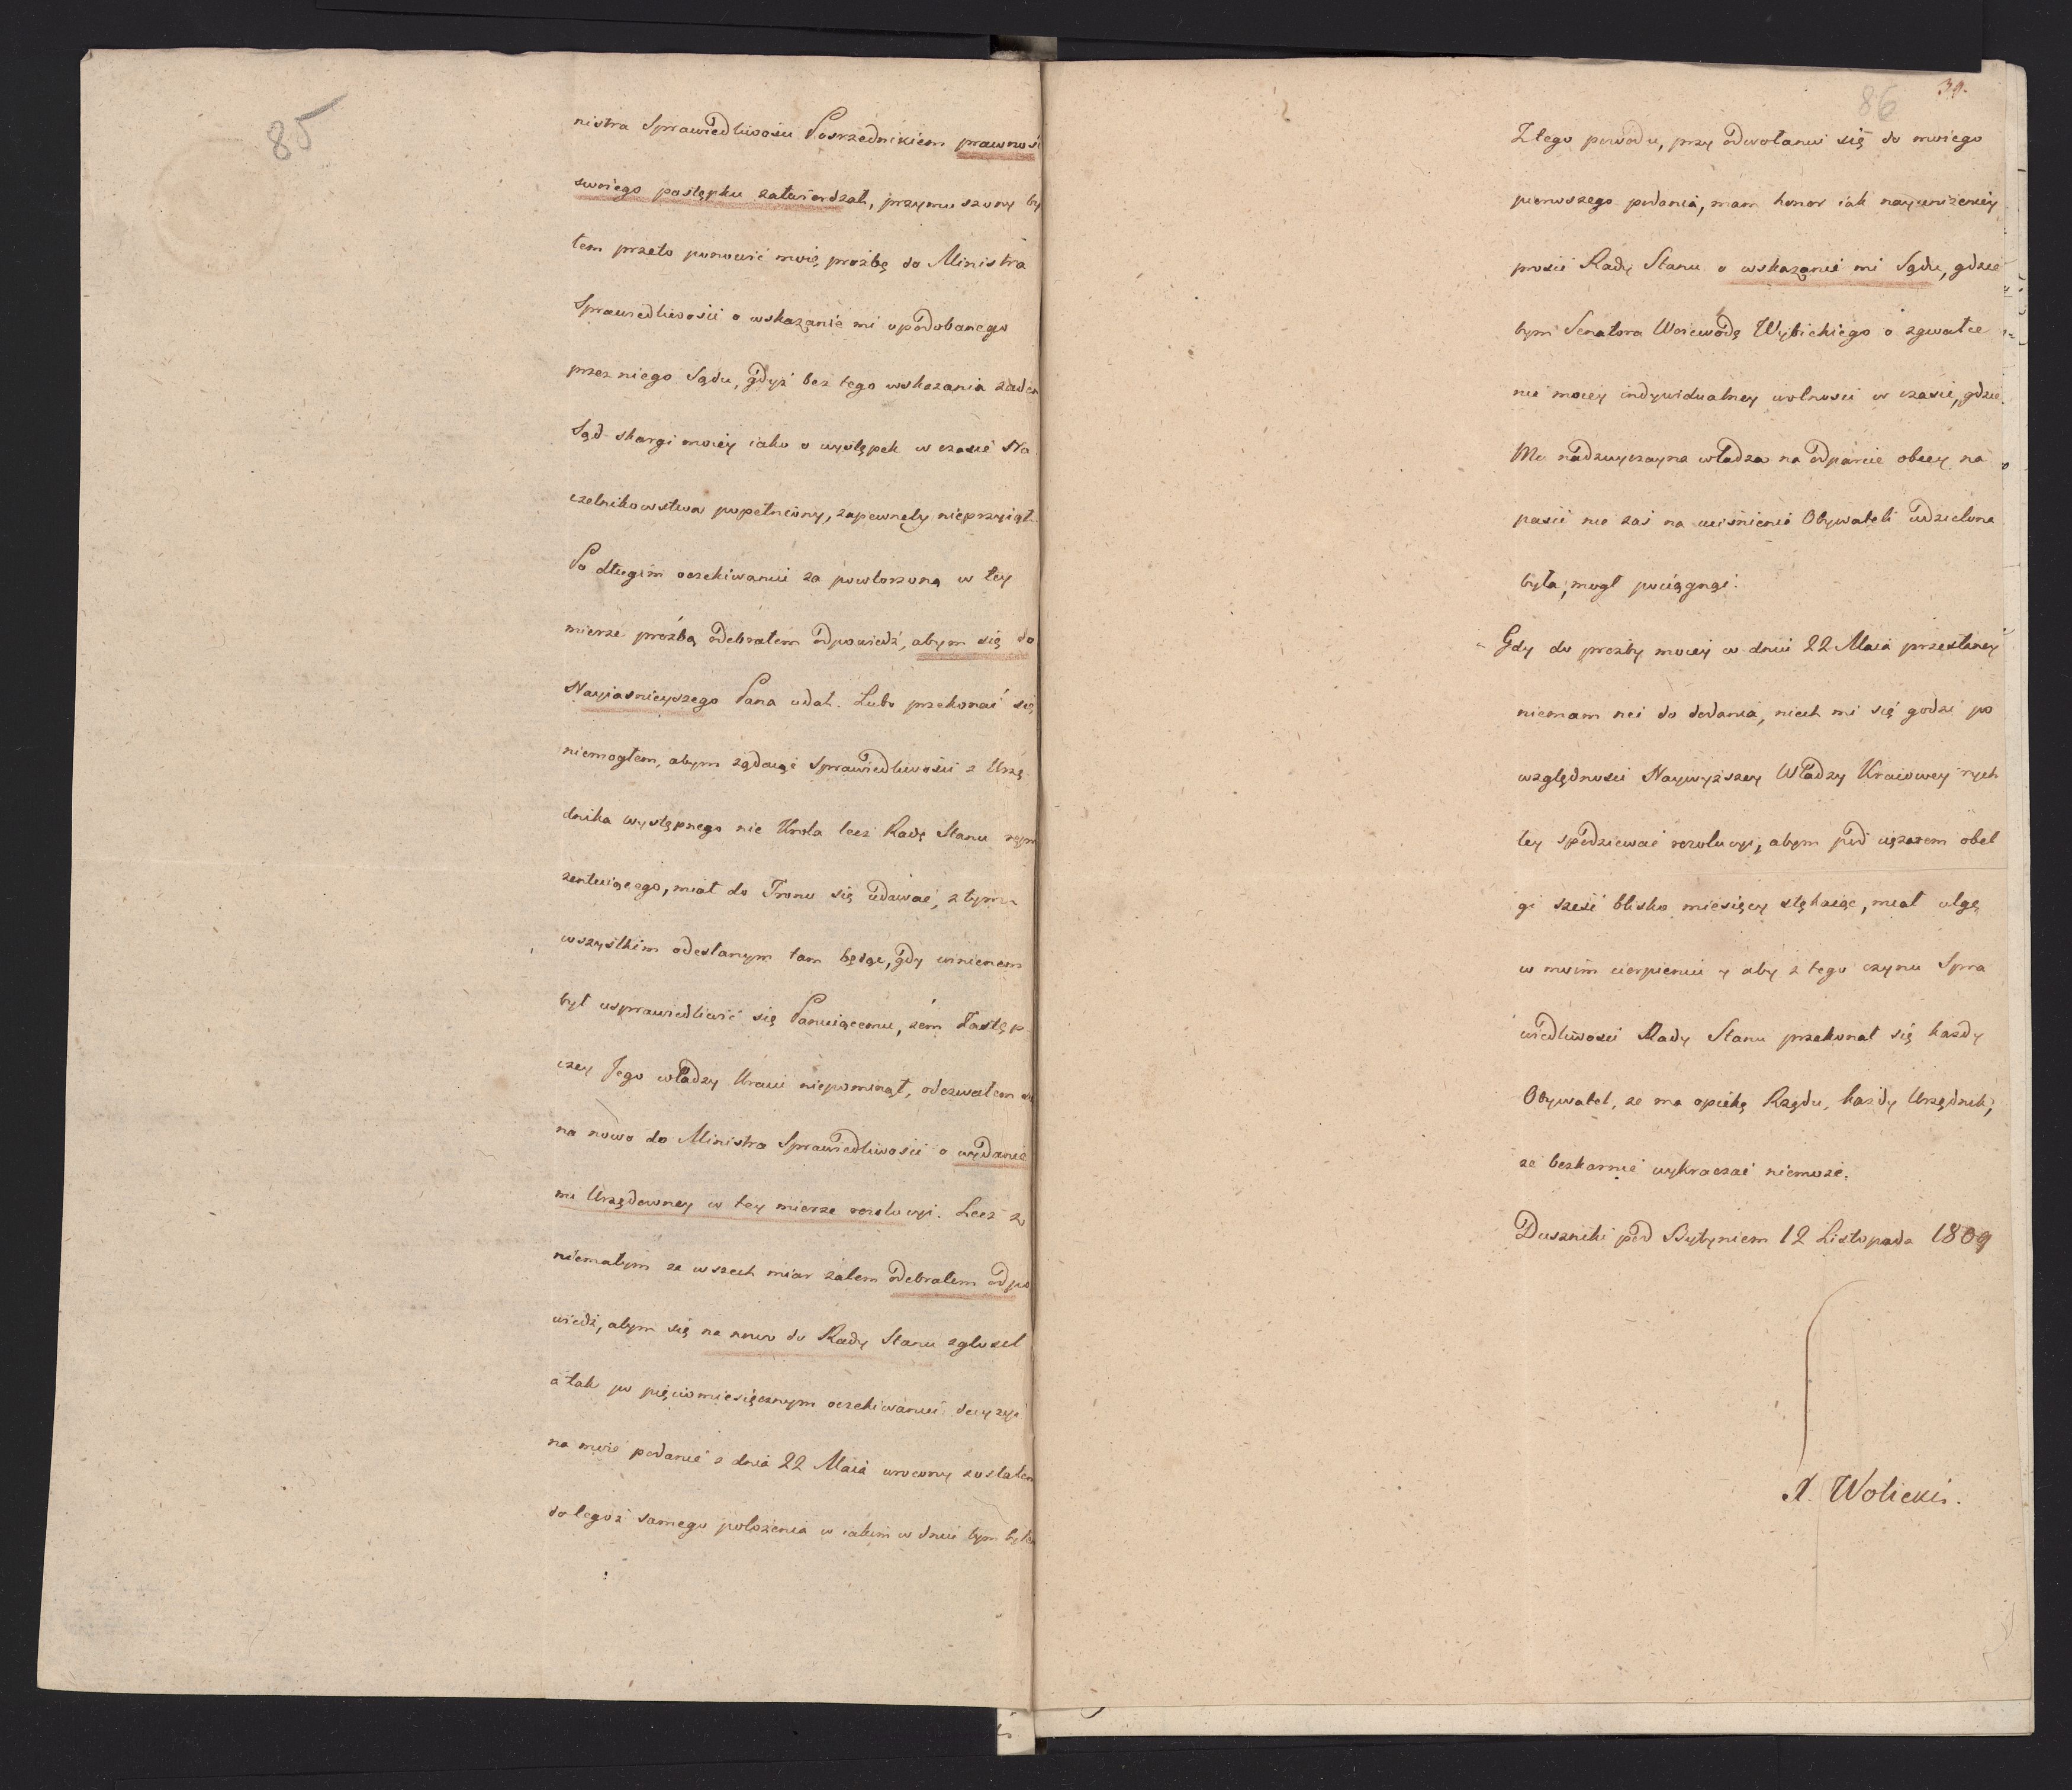 85
nistra Sprawiedliwości Posrzednikiem prawność
swoiego postępku zatwierdzał, przymuszony by
łem przeto ponowić moią prozbę do Ministra
Sprawiedliwosci o wskazanie mi upodobanego
przez niego Sądu, gdyż bez tego wskazania żaden
Sąd skargi moiey iako o występek w czasie Na
czelnikowstwa popełniony, zapewneby nieprzyiął.
Po długim oczekiwaniu za powtorzoną w tey
mierze prozbą odebrałem odpowiedź, abym się do
Nayiasnieyszego Pana udał. Lubo przekonać się
niemogłem, abym żądaiąc Sprawiedliwości z Urzę
dnika występnego nie Krola lecz Radę Stanu repre
zentuiącego, miał do Tronu się udawać, z tym
wszystkim odesłanym tam będąc, gdy winienem
był usprawiedliwić się Panuiącemu, żem Zastęp
czey Jego władzy Kraiu niepominął, odezwałem się
na nowo do Ministra Sprawiedliwości o wydanie
mi Urzędowney w tey mierze rezolucyi. Lecz z
niemałym ze wszech miar żalem odebrałem odpo
wiedź, abym się na nowo do Rady Stanu zgłosił
a tak po pięciomiesięcznym oczekiwaniu decyzyi
na moie podanie z dnia 22 Maia wrocony zostałem
do tegoż samego położenia w iakim w dniu tym byłem
86
39.
Z tego powodu, przy odwołaniu się do moiego
pierwszego podania, mam honor iak nayuniżeniey
prosić Rady Stanu o wskazanie mi Sądu, gdzie
bym Senatora Woiewodę Wybickiego o zgwałce
nie moiey indywidualney wolnosci w czasie, gdzie
Mu nadzwyczayna władza na odparcie obcey na
paści nie zaś na uciśnienie Obywateli udzielona
była, mogł pociągnąć.
Gdy do prozby moiey w dniu 22 Maia przesłaney
niemam nic do dodania, niech mi się godzi po
względnosci Naywyższey Władzy Kraiowey rych
ley spodziewać rezolucyi, abym pod ciężarem obel
gi sześć blisko miesięcy stękaiąc, miał ulgę
w moim cierpieniu y aby z tego czynu Spra
wiedliwości Rady Stanu przekonał się każdy
Obywatel, że ma opiekę Rządu, każdy Urzędnik,
że bezkarnie wykraczać niemoże.
Duszniki pod Bytyniem 12 Listopada 1809
X. Wolicki.